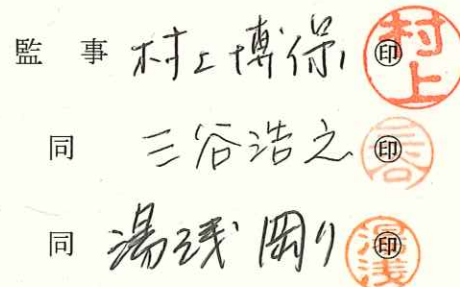 監 事 村上博保 ㊞ 村上
同 三谷浩之 ㊞ 三谷
同 湯浅剛 ㊞ 湯浅